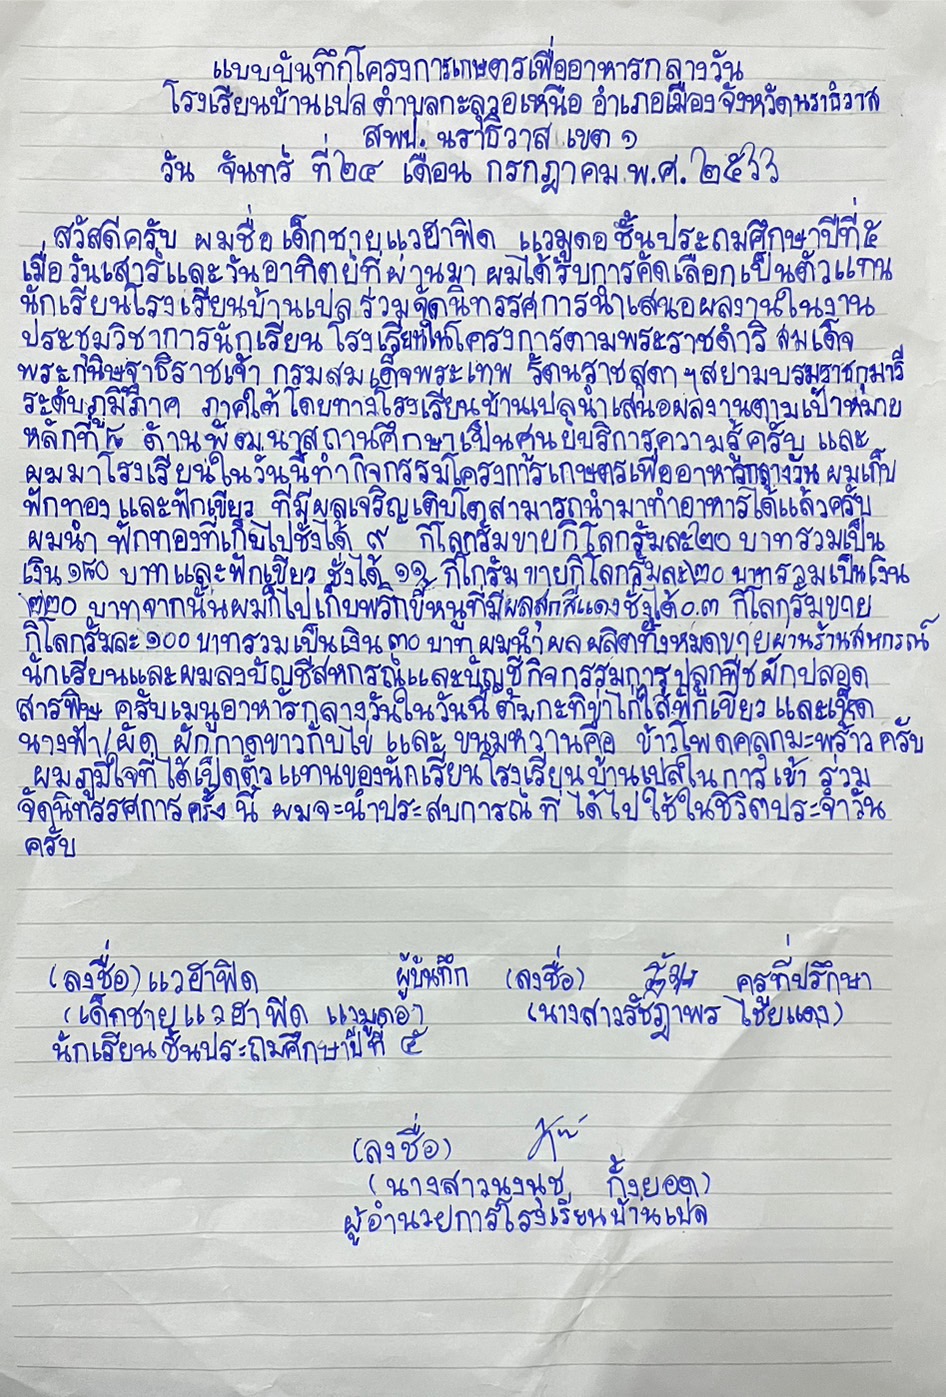 แบบบันทึกโครงการเกษตรเพื่ออาหารกลางวัน
โรงเรียนบ้านเปล ตำบลกะลุวอเหนือ อำเภอเมือง จังหวัดนราธิวาส
สพป. นราธิวาส เขต ๑
วัน จันทร์ ที่ ๒๔ เดือน กรกฎาคม พ.ศ. ๒๕๖๖
สวัสดีครับ ผมชื่อ เด็กชายแวฮาฟิด แวมูดอ ชั้นประถมศึกษาปีที่ ๕
เมื่อวันเสาร์และวันอาทิตย์ที่ผ่านมา ผมได้รับการคัดเลือกเป็นตัวแทน
นักเรียนโรงเรียนบ้านเปล ร่วมจัดนิทรรศการนำเสนอผลงานในงาน
ประชุมวิชาการนักเรียน โรงเรียนในโครงการตามพระราชดำริ สมเด็จ
พระกนิษฐาธิราชเจ้า กรมสมเด็จพระเทพ รัตนราชสุดาฯ สยามบรมราชกุมารี
ระดับภูมิภาค ภาคใต้ โดยทางโรงเรียนบ้านเปลนำเสนอผลงานตามเป้าหมาย
หลักที่ ๘ ด้านพัฒนาสถานศึกษาเป็นศูนย์บริการความรู้ครับ และ
ผมมาโรงเรียนในวันนี้ทำกิจกรรมโครงการเกษตรเพื่ออาหารกลางวัน ผมเก็บ
ฟักทอง และฟักเขียว ที่มีผลเจริญเติบโตสามารถนำมาทำอาหารได้แล้วครับ
ผมนำ ฟักทองที่เก็บไปชั่งได้ ๙ กิโลกรัมขายกิโลกรัมละ๒๐ บาทรวมเป็น
เงิน ๑๘๐ บาทและฟักเขียว ชั่งได้ ๑๑ กิโกรัม ขายกิโลกรัมละ๒๐ บาทรวมเป็นเงิน
๒๒๐ บาทจากนั้นผมก็ไปเก็บพริกขี้หนูที่มีผลสุกสีแดงชั่งได้ ๐.๓ กิโลกรัมขาย
กิโลกรัมละ ๑๐๐ บาทรวมเป็นเงิน ๓๐ บาท ผมนำ ผลผลิตทั้งหมดขายผ่านร้านสหกรณ์
นักเรียนและผมลงบัญชีสหกรณ์และบัญชีกิจกรรมการปลูกพืชผักปลอด
สารพิษ ครับเมนูอาหารกลางวันในวันนี้ ต้มกะทิข่าไก่ใส่ฟักเขียว และเห็ด
นางฟ้า/ผัด ผักกาดขาวกับไข่ และ ขนมหวานคือ ข้าวโพดคลุกมะพร้าว ครับ
ผมภูมิใจที่ได้เป็ดตัวแทนของนักเรียนโรงเรียนบ้านเปลในการเข้า ร่วม
จัดนิทรรศการ ครั้งนี้ ผมจะนำประสบการณ์ที่ ได้ไปใช้ในชีวิตประจำวัน
ครับ
(ลงชื่อ) แวฮาฟิด ผู้บันทึก (ลงชื่อ) ครูที่ปรึกษา
(เด็กชายแวฮาฟิด แวมูดอ) (นางสาวรัชฎาพร ไชยแดง)
นักเรียนชั้นประถมศึกษาปีที่ ๕
(ลงชื่อ)
(นางสาวนงนุช กิ้งยอด)
ผู้อำนวยการโรงเรียนบ้านเปล